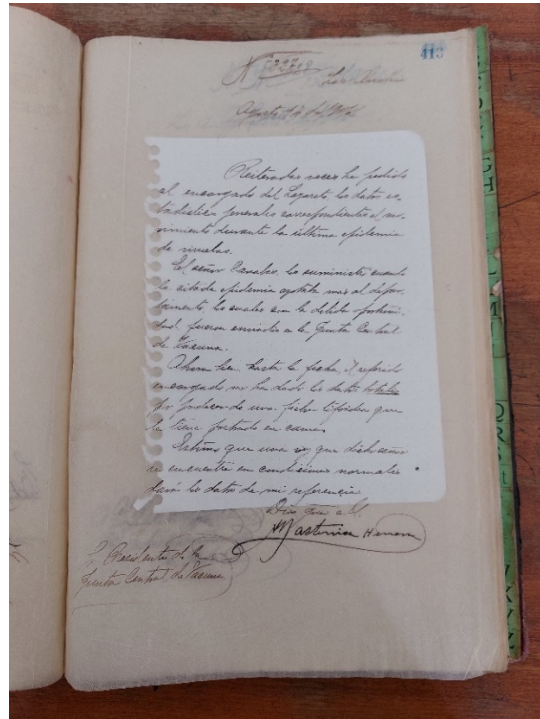 413
Reiteradas veces he pedido
al encargado del Lazareto los datos es-
tadísticos generales correspondientes al mo-
vimiento durante la última epidemia
de viruelas.
El señor los suministró cuando
la citada epidemia azotaba mas al depar-
tamento, los cuales con la debida oportuni-
dad, fueron enviados a la Junta Central
de Vacuna.
Ahora bien, hasta la fecha, el referido
encargado no ha dado los datos totales
por padecer de una fiebre tifoidea que
lo tiene postrado en cama.
Estimo que una vez que dicho señor
se encuentre en condiciones normales
dará los datos de mi referencia
Dios gue a U.
Martínez Herrera
P. Residente de la
Junta Central de Vacuna